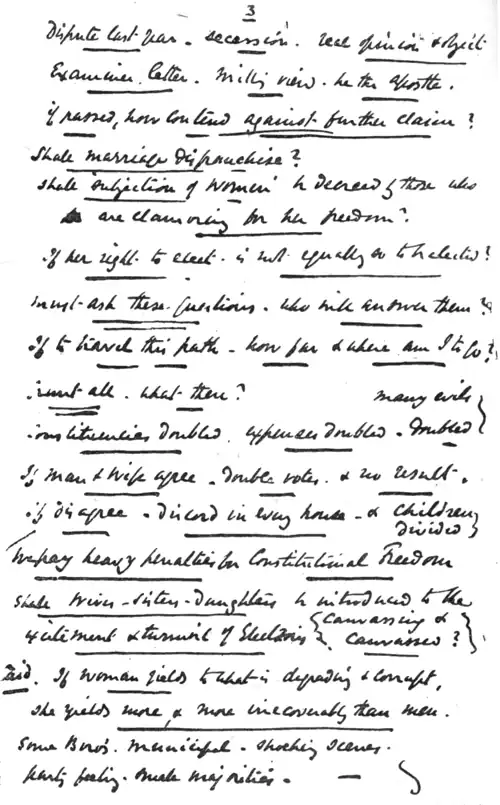 3
Dispute last year. secession. real opinion & object
Examiner. letter. Mill's view. he the Apostle.
if passed, how contend against further claim?
Shall marriage disfranchise?
Shall 'subjection of Women' be decreed by those who
are clamoring for her freedom?
If her right to elect - is not equally so to be elected?
must ask these questions. who will answer them?
If to travel this path - how far & where am I to go?
grant all. what then? many evils
constituencies doubled. expenses doubled - doubled
If man & wife agree - double votes. & no result.
if disagree - Discord in every house - & children divided
We pay heavy penalties for Constitutional Freedom
Shall Wives - Sisters - Daughters be introduced to the
excitement & turmoil of Elections canvassing & canvassed?
If woman yields to what is degrading & corrupt,
she yields more, & more irrecoverably than men.
Some Boro's. municipal - shocking scenes.
party feeling. small majorities -